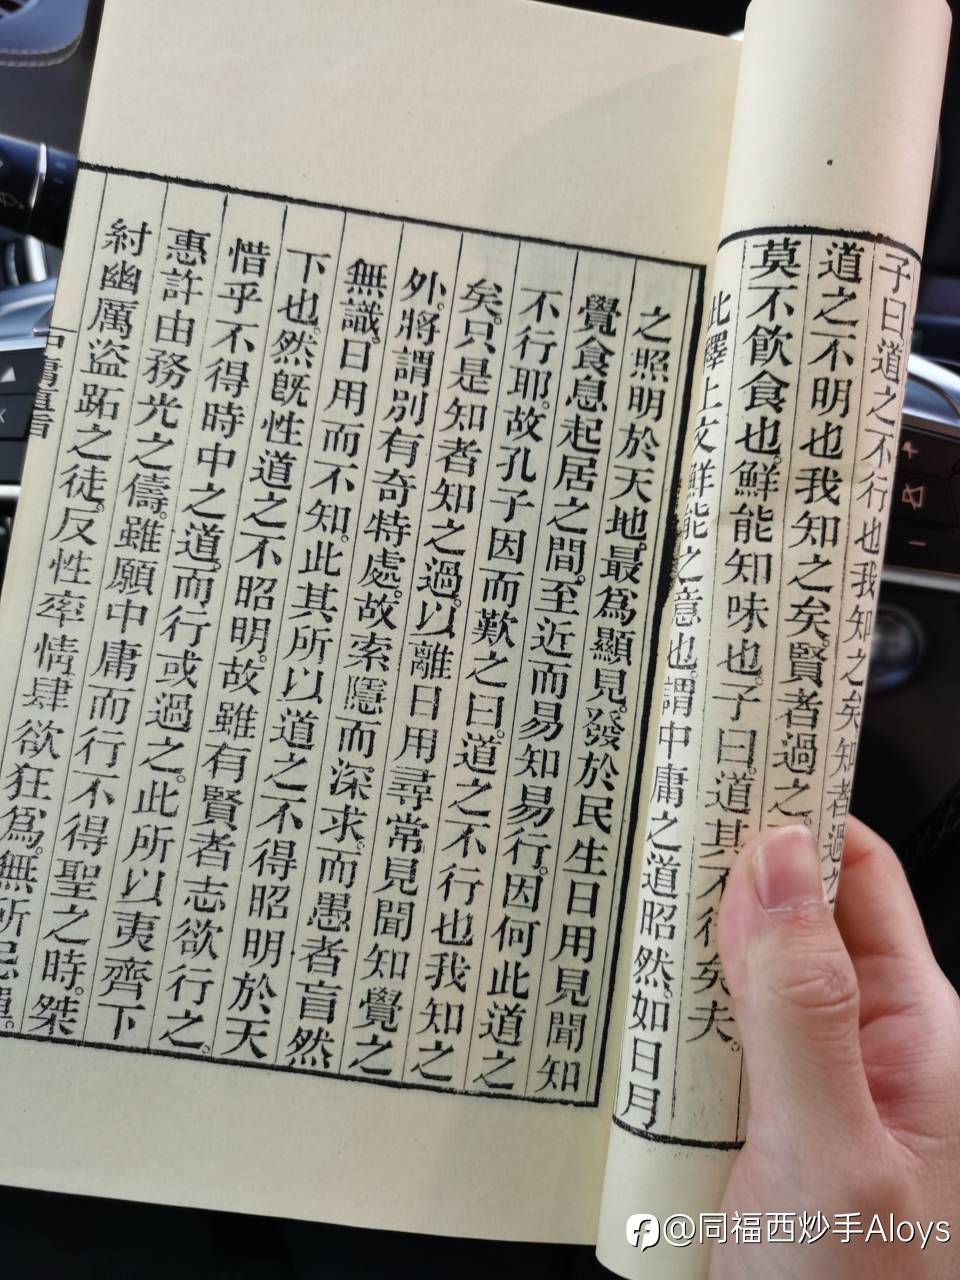 子曰道之不行也我知之矣知者過之
道之不明也我知之矣。賢者過之。
莫不飲食也。鮮能知味也。子曰。道其不行矣夫。
此釋上文鮮能之意也。謂中庸之道昭然。如日月
之照明於天地。最爲顯見。發於民生日用見聞知
覺食息起居之間。至近而易知易行。因何此道之
不行耶。故孔子因而歎之曰。道之不行也我知之
矣。只是知者知之過。以離日用尋常見聞知覺之
外。將謂別有奇特處。故索隱而深求。而愚者盲然
無識。日用而不知。此其所以道之不得昭明於天
下也。然既性道之不昭明。故雖有賢者志欲行之。
惜乎不得時中之道。而行或過之。此所以夷齊下
惠許由務光之儔。雖願中庸而行不得聖之時。桀
紂幽厲盜跖之徒。反性率情肆欲狂爲。無所忌憚。
中庸直指
@同福西炒手Aloys